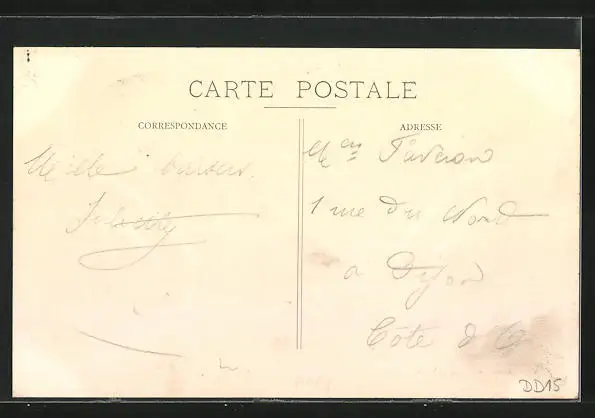 CARTE POSTALE
CORRESPONDANCE
Mille baisers
ADRESSE
1 rue du Nord
a Dijon
Côte d'Or
DD15